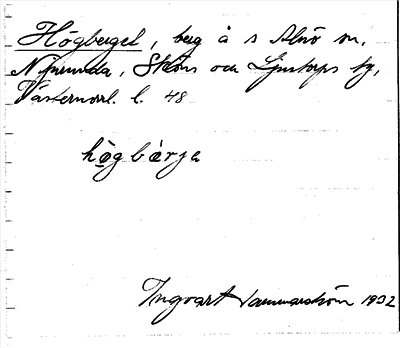 Högberget, berg å s Alnö sn,
Njurunda, Sköns och Ljustorps tg,
Västernorrl. l. 48
högbärje
Ingvart Hammarström 1932